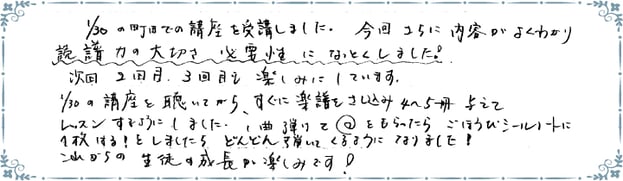 1/30の町田での講座を受講しました。今回さらに内容がよくわかり
読譜力の大切さ 必要性になっとくしました!
次回 2回目、3回目も楽しみにしています。
1/30の講座を聴いてから、すぐに楽譜をさし込み 4〜5冊 与えて
レッスンするようにしました。1曲弾けて◎をもらったら ごほうびシールノートに
1枚はる!としましたら どんどん弾いてくるようになりました!
これからの 生徒の成長が楽しみです!